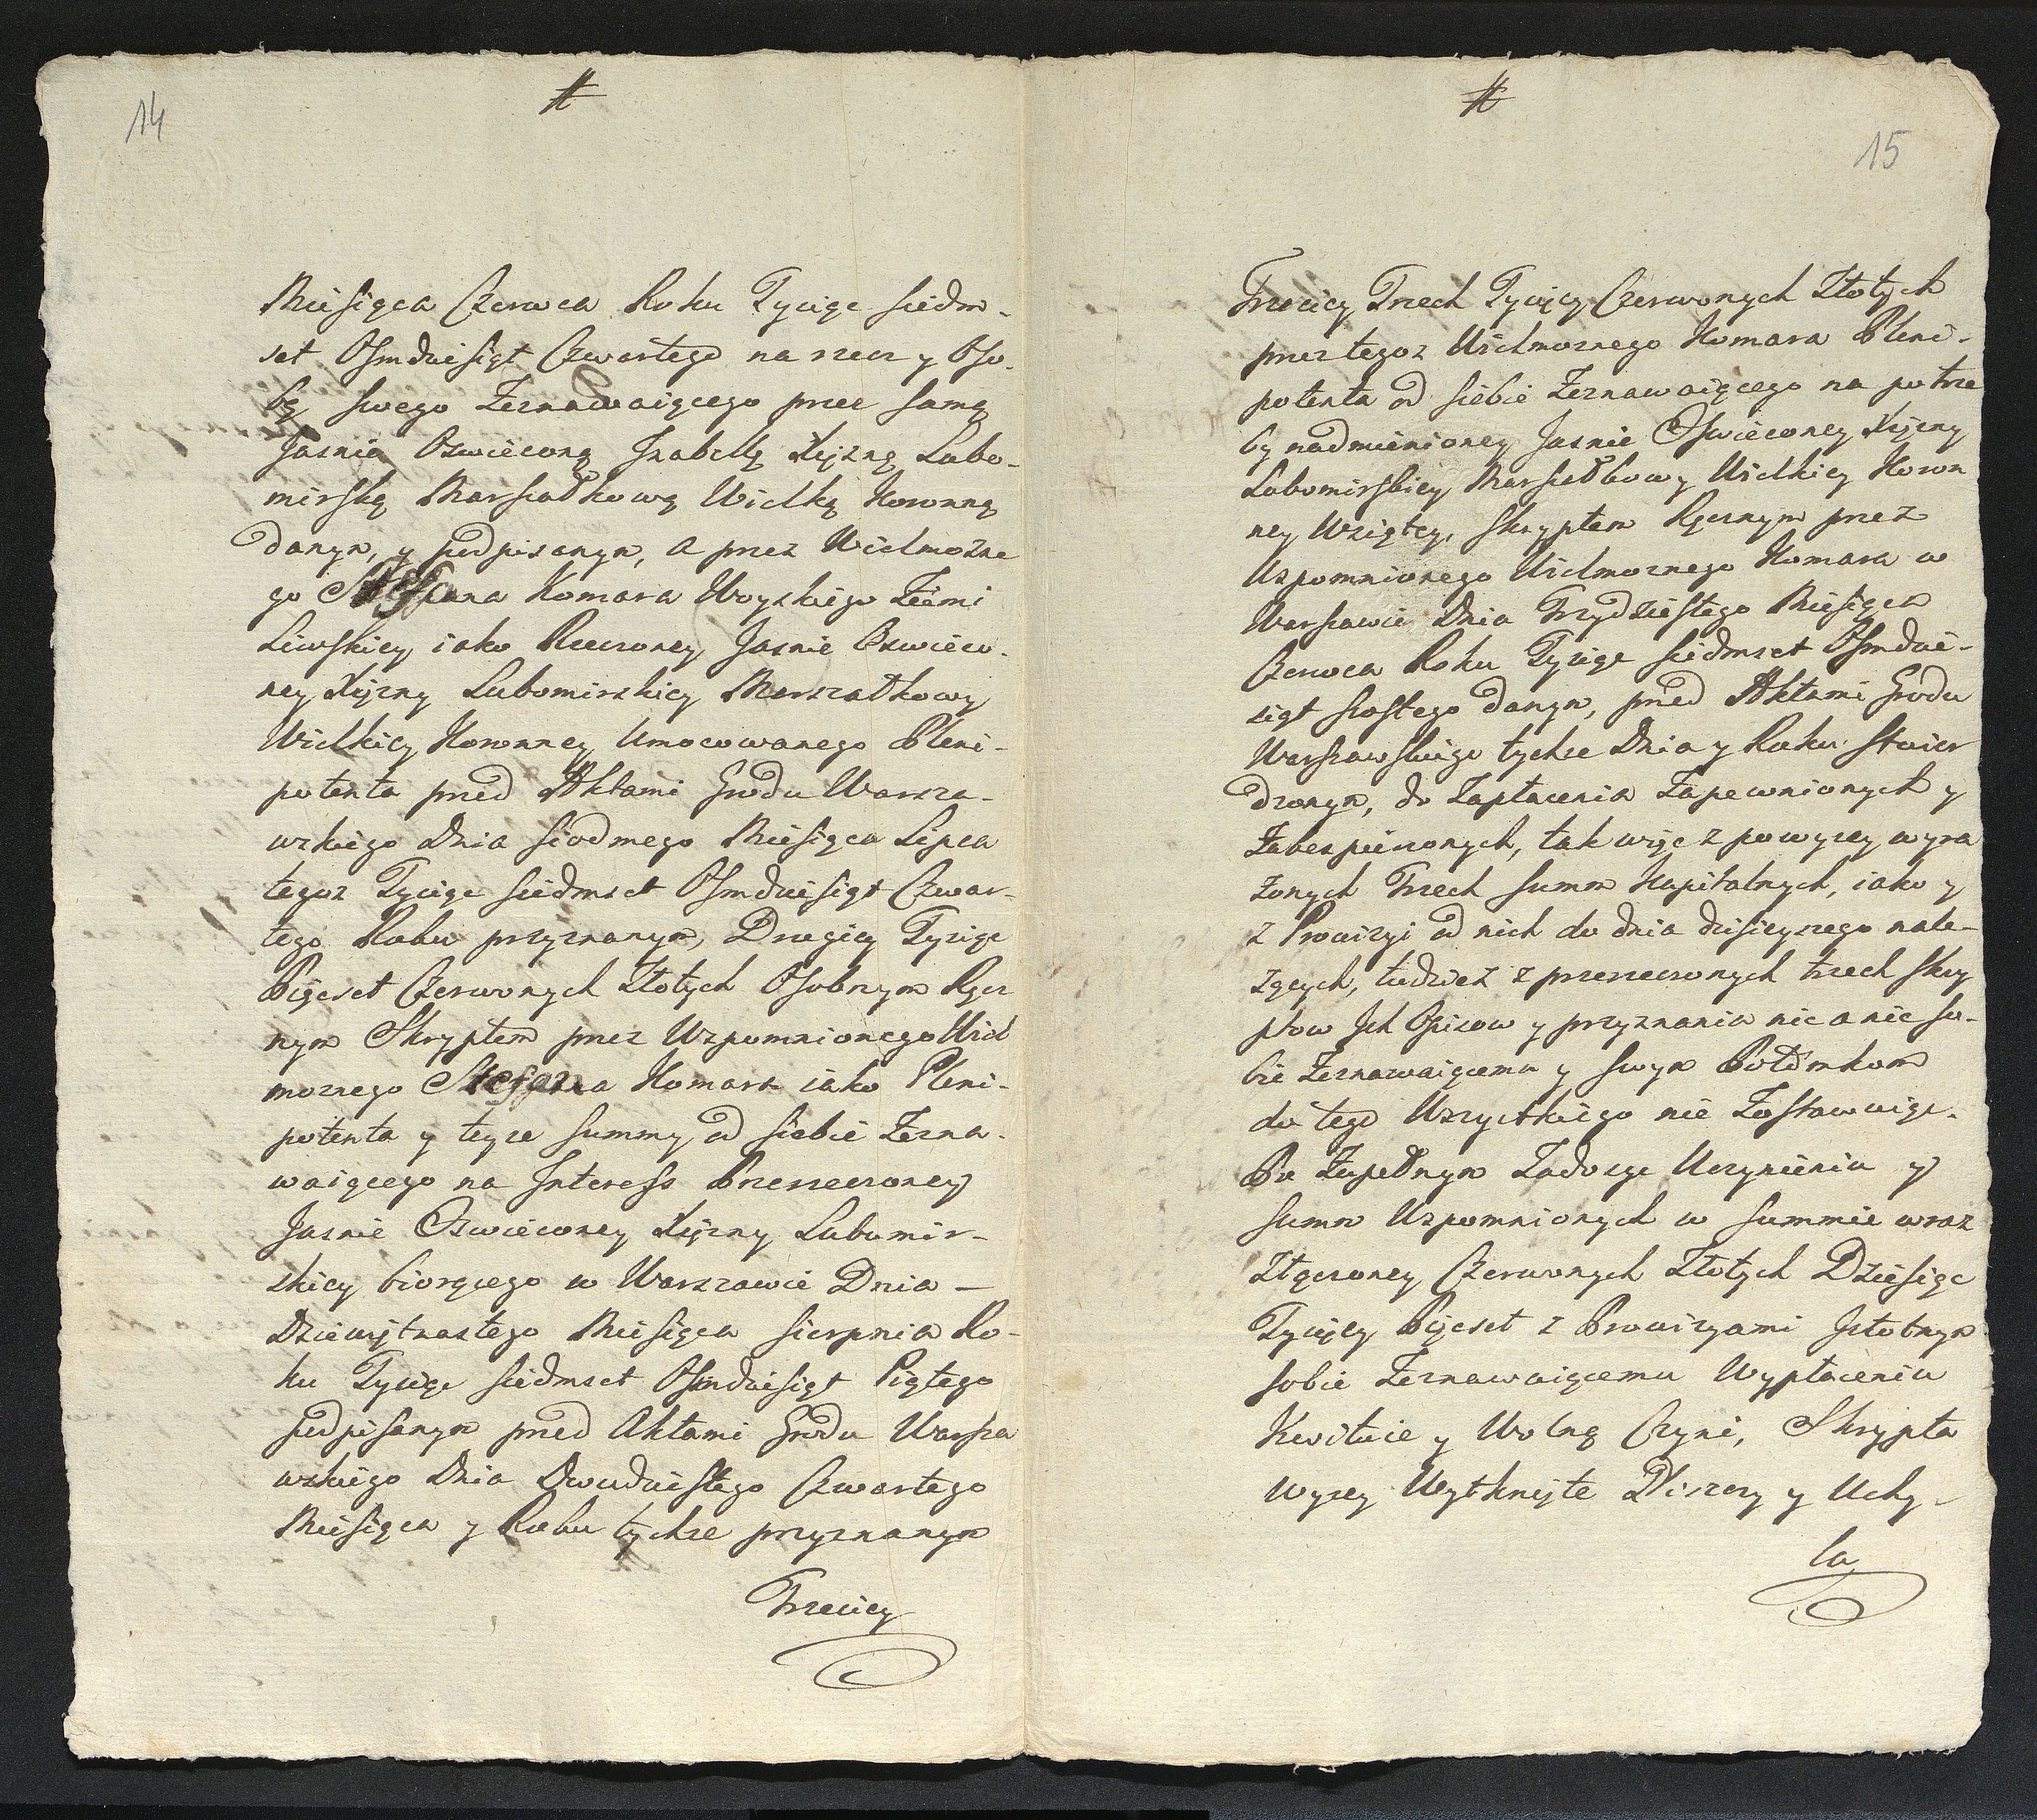 14
#
Miesiąca Czerwca Roku Tysiąc siedm-
set Osmdziesiąt Czwartego na rzecz y Oso-
bę swego Zeznawaiącego prze samą
Jasnie Oswieconą Izabellę Xiężnę Lubo-
mirską Marszałkową Wielką Koronną
danym, y podpisanym, a przez Wielmożne
go Steffana Komara Woyskiego Ziemi
Liwskiey iako Rzeczoney Jasnie Oswieco-
ney Xiężny Lubomirskiey Marszałkowy
Wielkiey Koronney Umocowanego Pleni-
potenta przed Aktami Grodu Warsza-
wskiego Dnia siodmego Miesiąca Lipca
tegoz Tysiąc siedmset Osmdziesiąt Czwar-
tego Roku przyznanym, Drugiey Tysiąc
Pięcset Czerwonych Złotych Osobnym Ręcz
nym Skryptem przez Wzpomnionego Wiel
moznego Stefana Komara iako Pleni-
potenta y teyze summy od siebie Zezna-
waiącego na Interess Przerzeczoney
Jasnie Oswieconey Xiężny Lubomir-
skiey biorącego w Warszawie Dnia –
Dziewiętnastego Miesiąca Sierpnia Ro-
ku Tysiąc siedmset Osmdziesiąt Piątego
podpisanym przed Aktami Grodu Warsza
wskiego Dnia Dwudziestego Czwartego
Miesiąca y Roku tychze przyznanym
Trzeciey
#
15
Trzeciey Trzech Tysięcy Czerwonych Złotych
przez tegoz Wielmoznego Komara Pleni-
potenta od siebie Zeznawaiącego na potrze
by nadmienioney Jasnie Oswieconey Xiężny
Lubomirskiey Marszałkowy Wielkiey Koron
ney Wziętey, skryptem Ręcznym przez
Uzpomnionego Wielmoznego Komara w
Warszawie Dnia Trzydziestego Miesiąca
Czerwca Roku Tysiąc siedmset Osmdzie-
siąt szostego danym, przed Aktami Grodu
Warszawskiego tychze Dnia y Roku stwier
dzonym, do Zapłacenia Zapewnionych y
Zabezpieczonych, tak więc z powyzey wyra
zonych Trzech summ Kapitalnych, iako y
z Prowizyi od nich do dnia dzisieyszego nale-
zących, tudziez z przerzeczonych trzech skry
ptow Ich Opisow y przyznania nic a nic so-
bie Zeznawaiącemu y swym Potomkom
do tego Wszystkiego nie Zostawuiąc.
Po Zupełnym Zadosyc Uczynieniu y
summ Uzpomnionych w summie wraz
Złączoney Czerwonych Złotych Dziesięc
Tysięcy Pięcset z Prowizyami Istotnym
sobie Zeznawaiącemu Wypłaceniu
Kwituie y Wolną Czyni, Skrypta
wyzey Wytknięte Niszczy y Uchy-
la